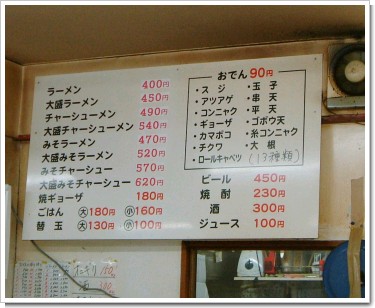 ラーメン 400円
大盛ラーメン 450円
チャーシューメン 490円
大盛チャーシューメン 540円
みそラーメン 470円
大盛みそラーメン 520円
みそチャーシュー 570円
大盛みそチャーシュー 620円
焼ギョーザ 180円
ごはん 大180円 小160円
替玉 大130円 小100円
おでん90円
・スジ ・玉子
・アツアゲ ・串天
・コンニャク ・平天
・ギョーザ ・ゴボウ天
・カマボコ ・糸コンニャク
・チクワ ・大根
・ロールキャベツ (13種類)
ビール 450円
焼酎 230円
酒 300円
ジュース 100円